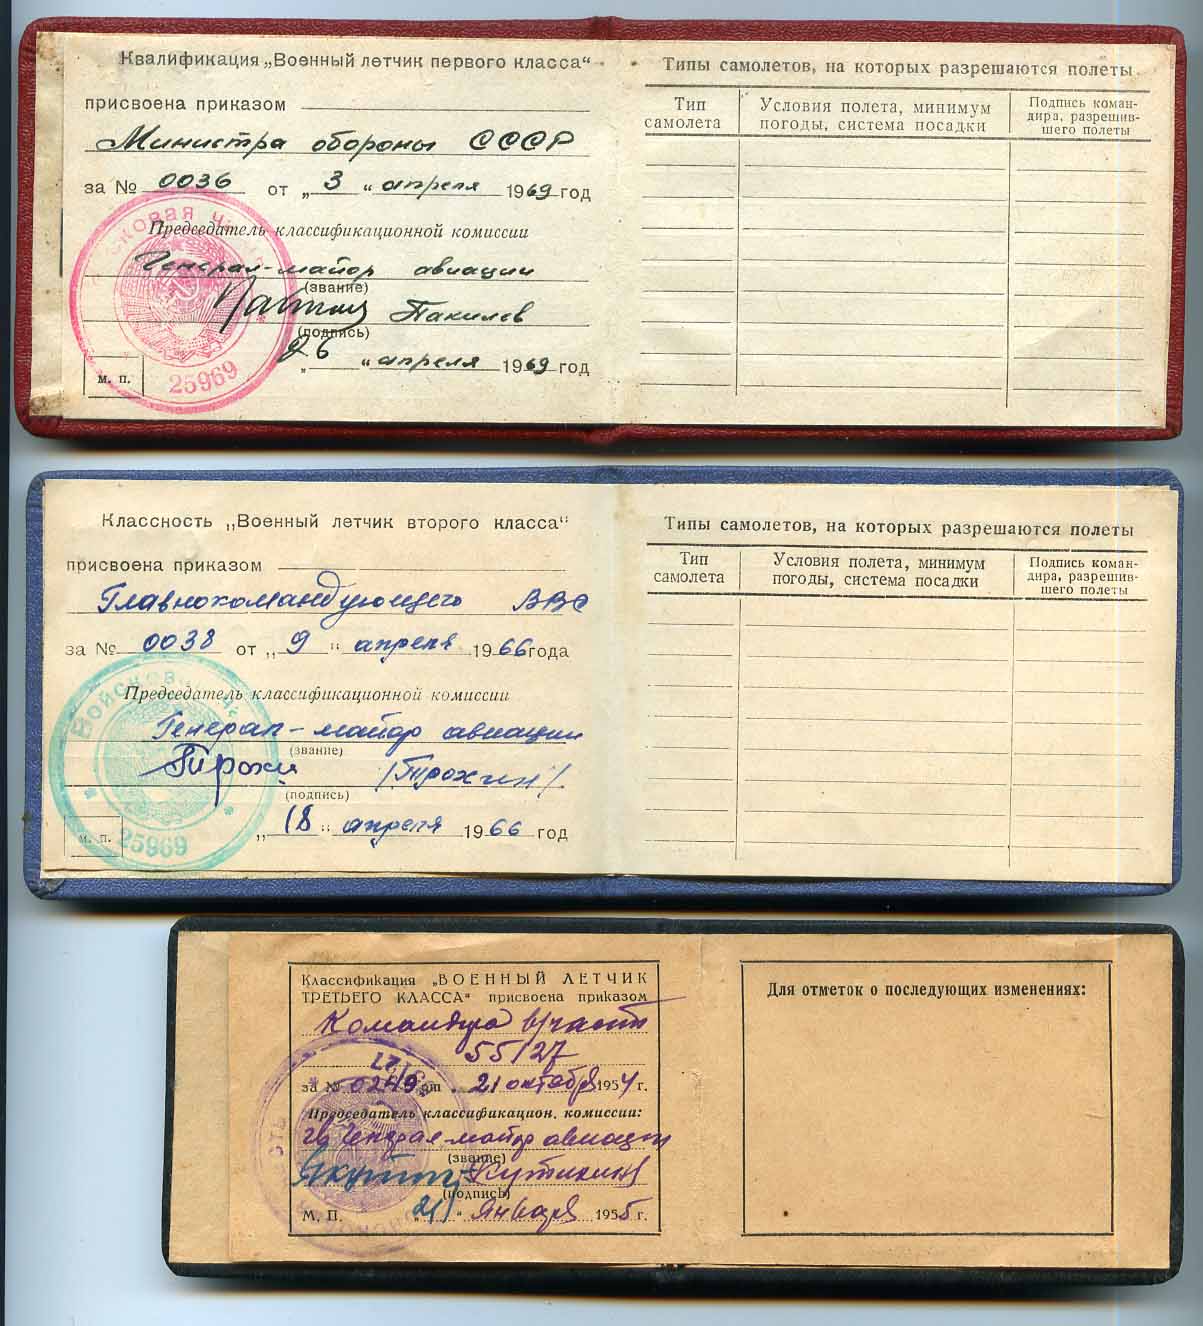 Квалификация „Военный летчик первого класса“
присвоена приказом
Министра обороны СССР
за № 0036 от „3“ апреля 1969 год
Председатель классификационной комиссии
Генерал-майор авиации
(звание)
(подпись)
„26“ апреля 1969 год
м. п.
25969
Типы самолетов, на которых разрешаются полеты
Тип самолета
Условия полета, минимум погоды, система посадки
Подпись коман-
дира, разрешив-
шего полеты
Классность „Военный летчик второго класса“
присвоена приказом
Главнокомандующего ВВС
за № 0038 от „9“ апреля 1966 года
Председатель классификационной комиссии
Генерал-майор авиации
(звание)
/Трохин/
(подпись)
„18“ апреля 1966 год
м. п.
Войсковая
25969
Типы самолетов, на которых разрешаются полеты
Тип самолета
Условия полета, минимум погоды, система посадки
Подпись коман-
дира, разрешив-
шего полеты
Классификация „ВОЕННЫЙ ЛЕТЧИК
ТРЕТЬЕГО КЛАССА“ присвоена приказом
Командира в/части
55127
за № 0249 от 21 октября 1954 г.
Председатель классификацион. комиссии:
Гв. Генерал-майор авиации
(звание)
(подпись)
М. П. „21“ Января 1955 г.
Для отметок о последующих изменениях: